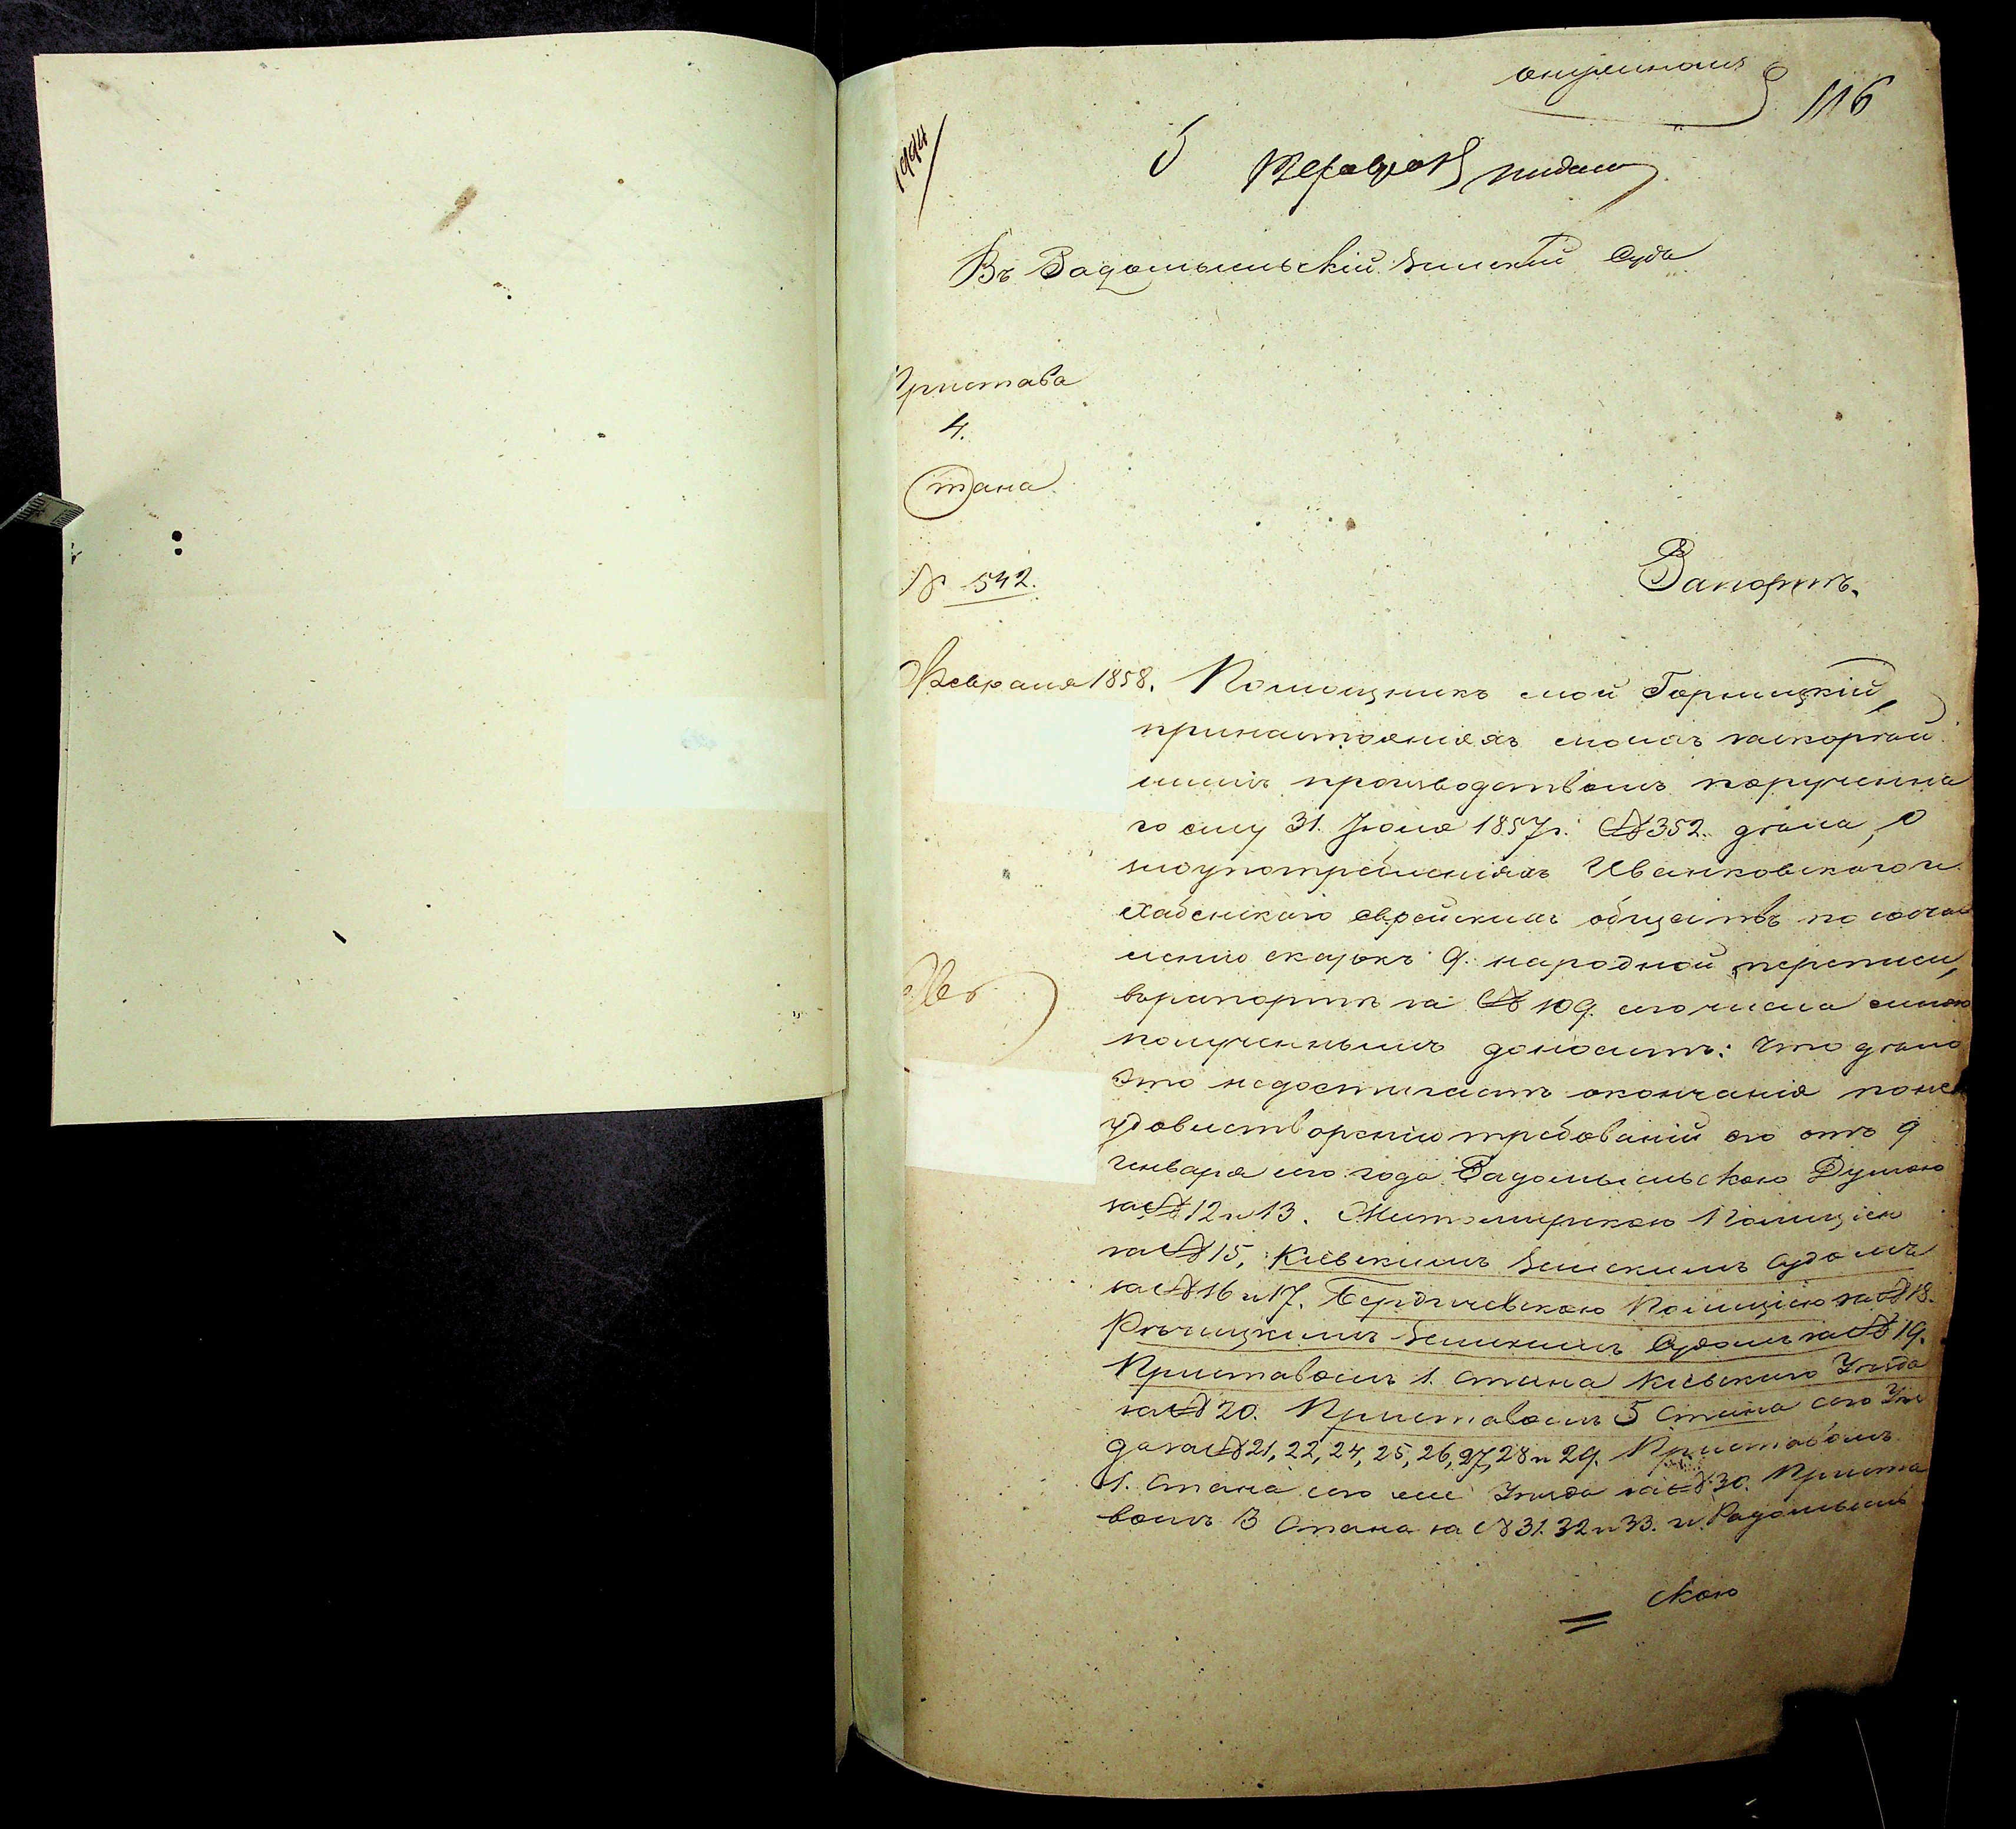 116
1994
5 Февраля
Въ Радомысльскій Земскій Судъ
Пристава
4.
Стана
№ 542.
Рапортъ.
Февраля 1858. Помощникъ мой Горницкій,
при настояніяхъ моихъ наскорѣй
шимъ производствомъ порученна
го ему 31. Іюля 1857 г. № 352. дѣла, О
злоупотребленіяхъ Иванковского и
Хабенского еврейскихъ обществъ по состав
ленію сказокъ 9. народной переписи,
в рапортѣ за № 109. сего числа мною
полученнымъ доноситъ: Что дѣло
это недостигаетъ окончанія по не
удовлетворенію требованій его отъ 9
Генваря сего года Радомысльскою Думою
за № 12 и 13. Житомирскою Полиціею
за № 15, Кіевскимъ Земскимъ Судомъ
за № 16 и 17. Бердичевскою Полиціею за № 18.
Рѣчицкимъ Земскимъ Судомъ за № 19.
Приставомъ 1. Стана Кіевского Уѣзда
за № 20. Приставомъ 5 Стана сего Уѣз
да за № 21, 22, 24, 25, 26, 27, 28 и 29. Приставомъ
1. Стана сего же Уѣзда за № 30. Приста
вомъ 3 Стана за № 31. 32 и 33. и Радомысль
скою